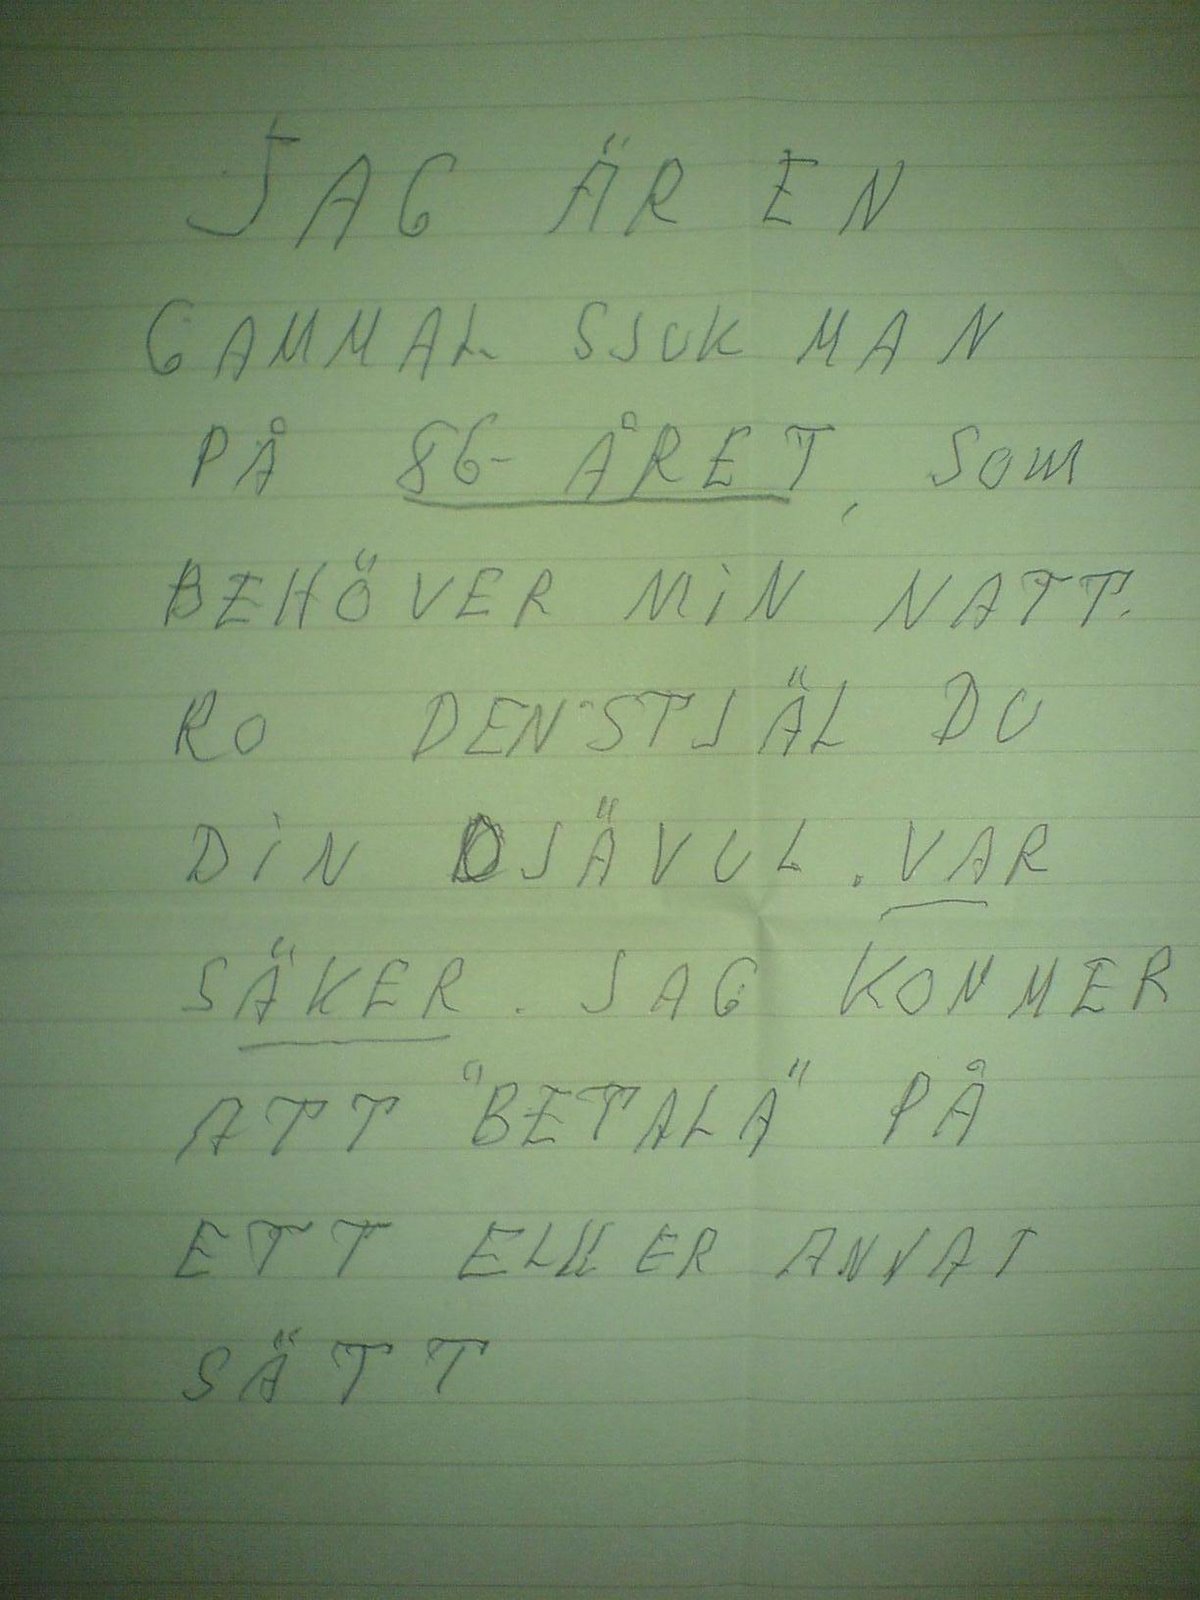 JAG ÄR EN
GAMMAL SJUK MAN
PÅ 86-ÅRET, SOM
BEHÖVER MIN NATT-
RO DEN STJÄL DU
DIN DJÄVUL. VAR
SÄKER. JAG KOMMER
ATT "BETALA" PÅ
ETT ELLER ANNAT
SÄTT